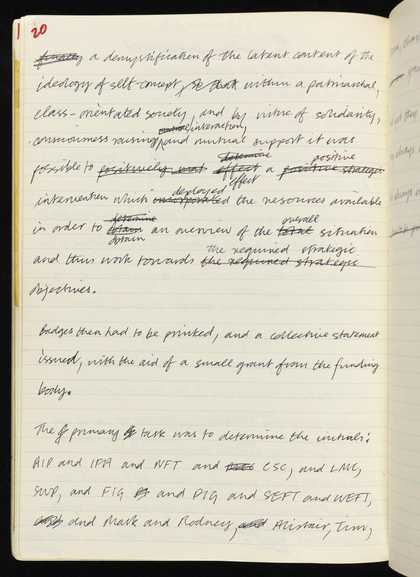 20
a demystification of the latent content of the
ideology of self concept, within a patriarchal,
class-orientated society, and by virtue of solidarity,
interaction,
consciousness raising, and mutual support it was
determine positive
possible to positively effect a positive strategic
deployed effect
intervention which incorporated the resources available
determine overall
in order to obtain an overview of the total situation
obtain the required strategic
and thus work towards the required strategic
objectives.
Badges then had to be printed, and a collective statement
issued, with the aid of a small grant from the funding
body.
The primary task was to determine the initials:
AIP and IPA and NFT and CSC, and LMC,
SWP, and FIG and PIG and SEFT and WEFT,
and Mark and Rodney, and Alistair, Tim,